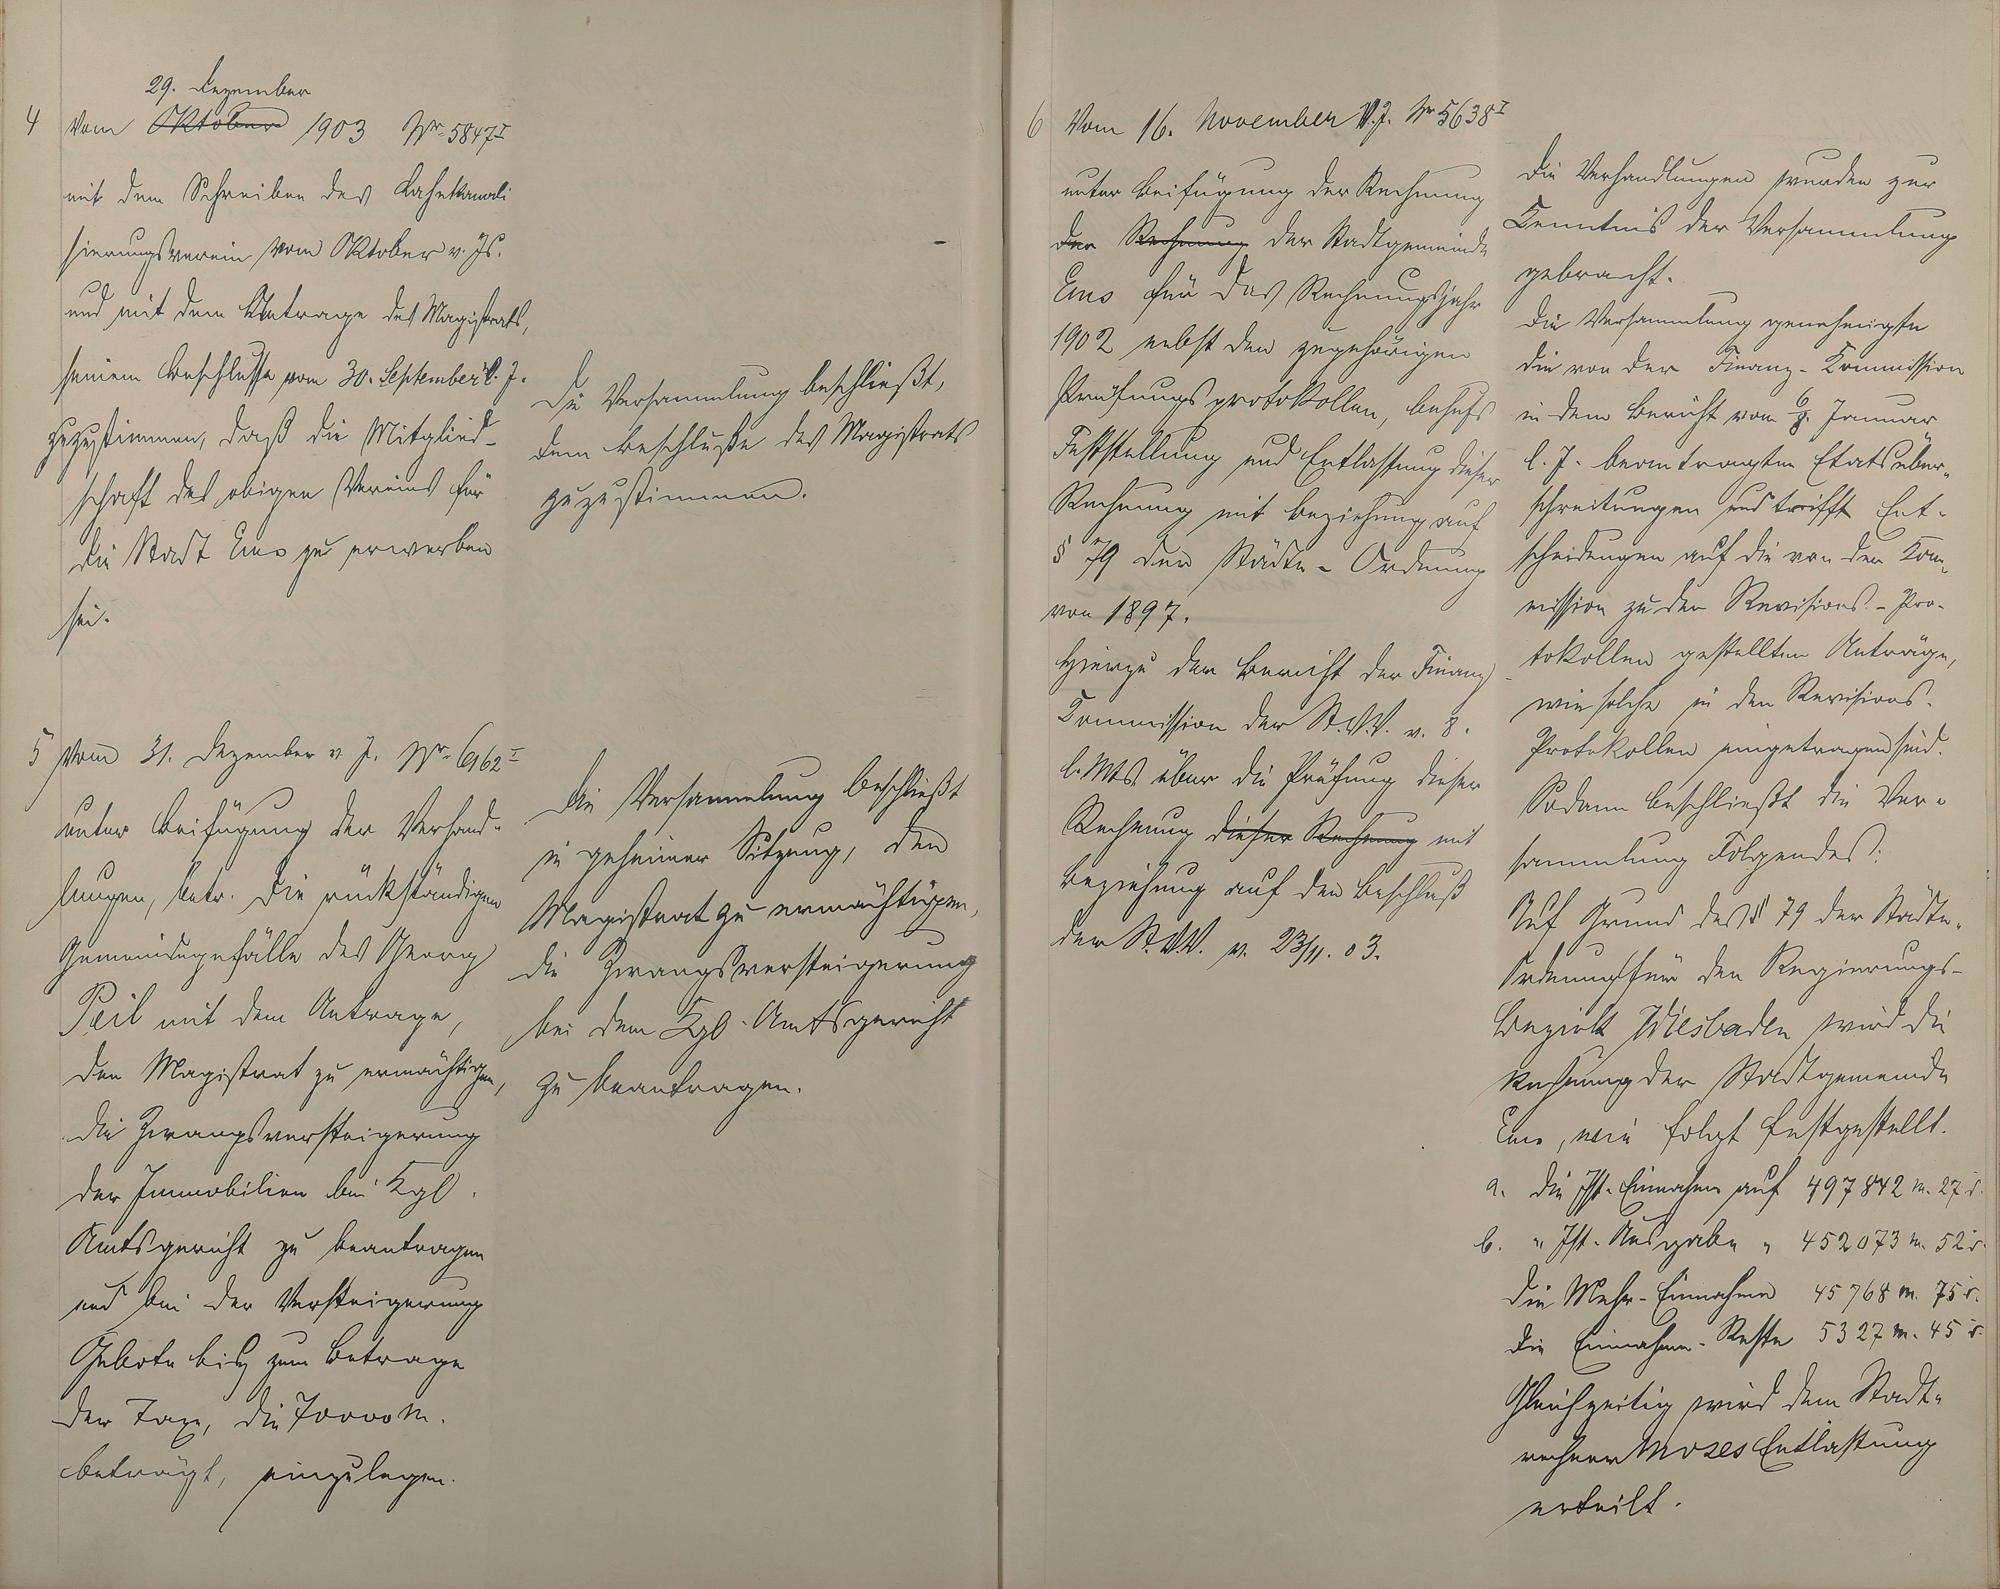 29. Dezember
4 Vom Oktober 1903 Nr. 5847 I
mit dem Schreiben des Lahnkanali
sierungsverein vom Oktober v. Js.
und mit dem Antrage des Magistrats,
seinem Beschlusse vom 30. September l. J.
zuzustimmen, daß die Mitglied-
schaft des obigen Vereins für
die Stadt Ems zu erwerben
sei.
Die Versammlung beschließt,
dem Beschlusse des Magistrats
zuzustimmen.
5 Vom 31. Dezember v. J. Nr. 6162 I
unter Beifügung der Verhand-
lungen, betr. die rückständigen
Gemeindegefälle des Georg
Peil mit dem Antrage,
den Magistrat zu ermächtigen,
die Zwangsversteigerung
der Immobilien bei Kgl.
Amtsgericht zu beantragen
und bei der Versteigerung
Gebote bis zum Betrage
der Taxe, die 70000 M.
beträgt, einzulegen.
Die Versammlung beschließt
in geheimer Sitzung, den
Magistrat zu ermächtigen,
die Zwangsversteigerung
bei dem Kgl. Amtsgericht
zu beantragen.
6 Vom 16. November v. J. Nr 5638 I
unter Beifügung der Rechnung
der Rechnung der Stadtgemeinde
Ems für das Rechnungsjahr
1902 nebst den zugehörigen
Prüfungsprotokollen, behufs
Feststellung und Entlastung dieser
Rechnung mit Beziehung auf
§ 79 der Städte-Ordnung
von 1897.
Hierzu der Bericht der Finanz
Commission der St.V.V. v. 8.
l. Mts. über die Prüfung dieser
Rechnung dieser Rechnung mit
Beziehung auf den Beschluß
der St.V.V. v. 23/11. 03.
Die Verhandlungen wurden zur
Kenntnis der Versammlung
gebracht.
Die Versammlung genehmigte
die von der Finanz-Kommission
in dem Bericht vom 6. Januar
l. J. beantragten Etatsüber-
schreitungen und trifft Ent-
scheidungen auf die von der Kom-
mission zu den Revisions-Pro-
tokollen gestellten Anträge,
wie solche in den Revisions-
Protokollen eingetragen sind.
Sodann beschließt die Ver-
sammlung Folgendes:
Auf Grund des § 79 der Städte-
Ordnung für den Regierungs-
Bezirk Wiesbaden wird die
Rechnung der Stadtgemeinde
Ems, wie folgt festgestellt.
a. die Ist-Einnahme auf 497842 M. 27 d.
b. " Ist-Ausgabe " 452073 M. 52 d.
die Mehr-Einnahme 45768 M. 75 d.
die Einnahme-Reste 5327 M. 45 d.
Gleichzeitig wird dem Stadt-
rechner Moses Entlastung
erteilt.